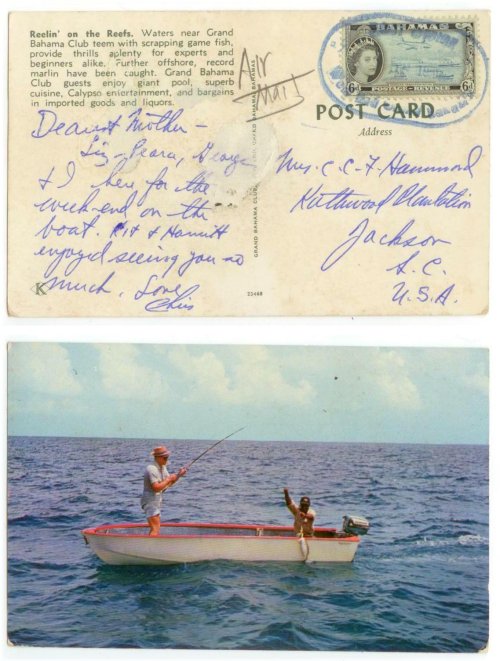 Reelin' on the Reefs. Waters near Grand
Bahama Club teem with scrapping game fish,
provide thrills aplenty for experts and
beginners alike. Further offshore, record
marlin have been caught. Grand Bahama
Club guests enjoy giant pool, superb
cuisine, Calypso entertainment, and bargains
in imported goods and liquors.
Air
Mail
BAHAMAS
6d POSTAGE & REVENUE 6d
POST CARD
Address
Dearest Mother -
Liz, George
& I here for the
week-end on the
boat. Kit & Harriett
enjoyed seeing you so
much. Love
Chis
Mrs. C. C. F. Hammond
Kathwood Plantation
Jackson
S.C.
U.S.A.
GRAND BAHAMA CLUB
K
23448